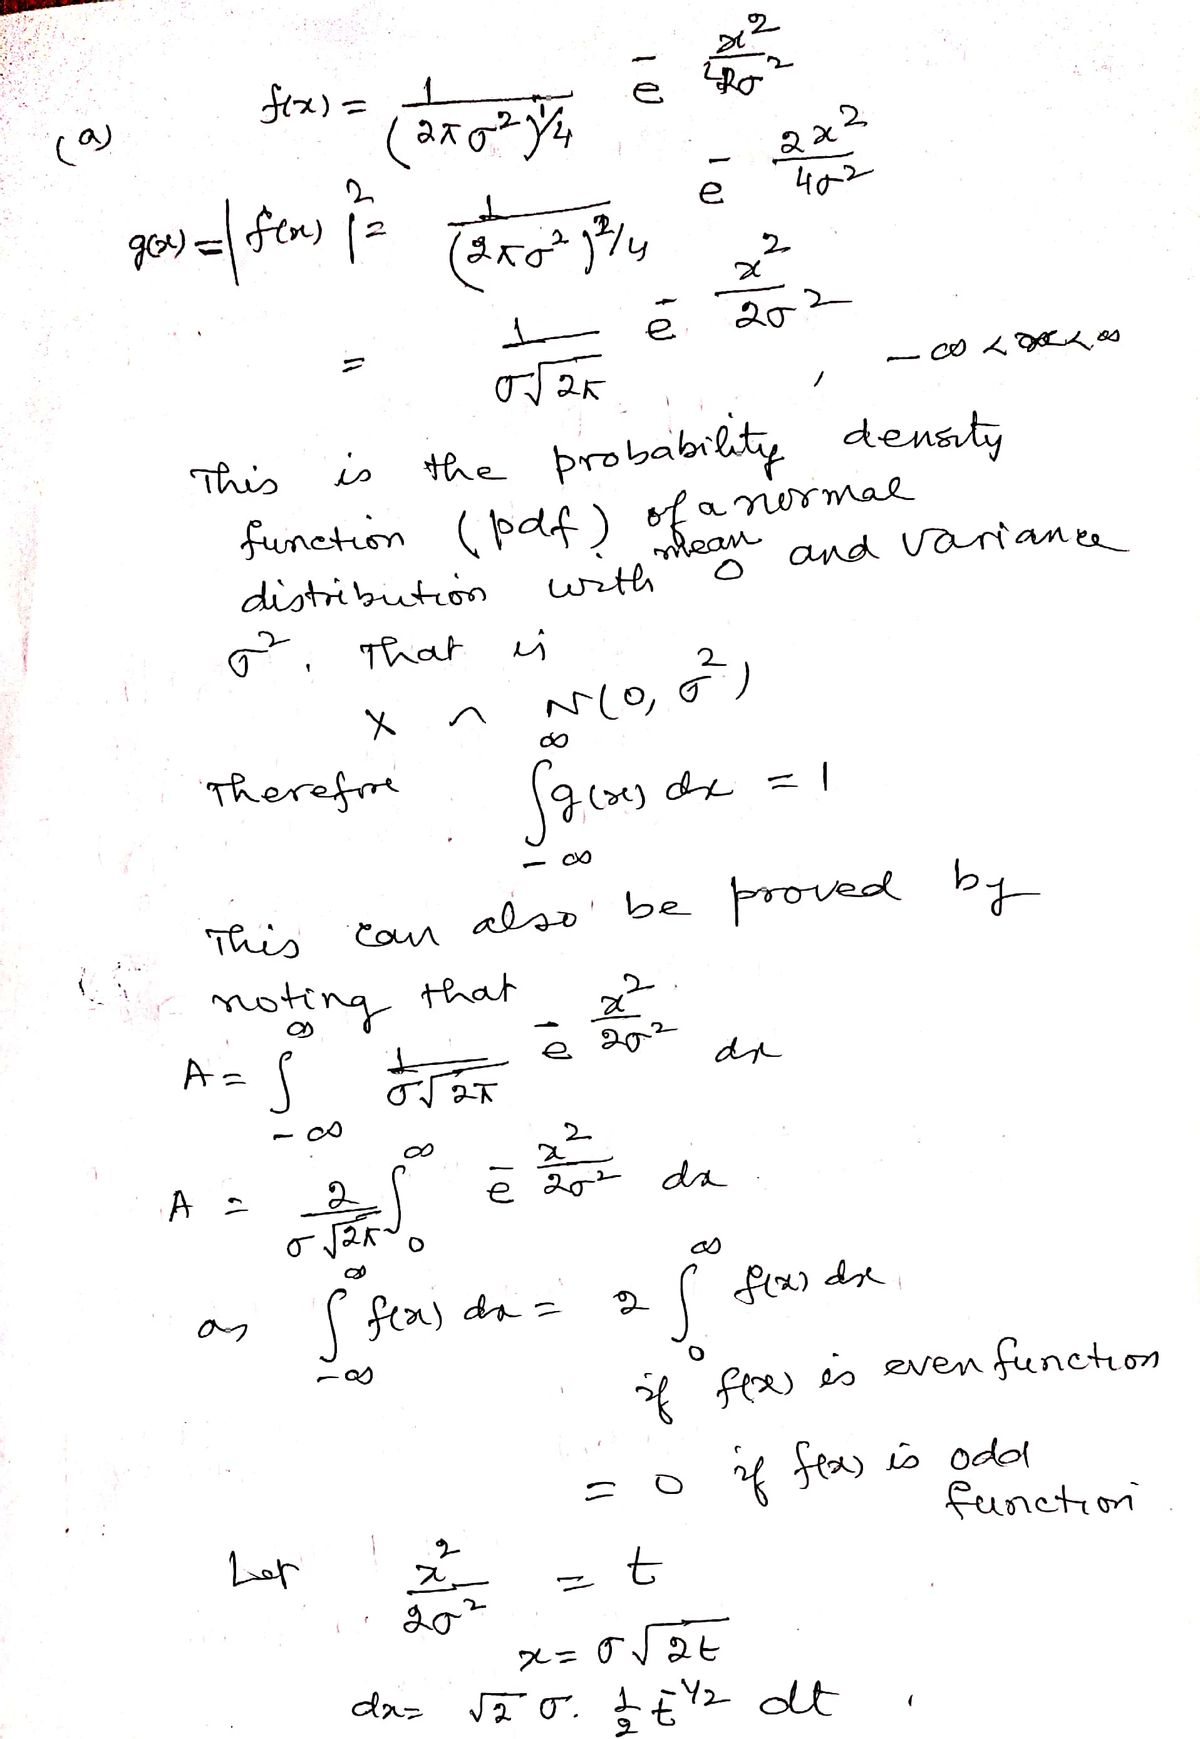 (a) f(x) = 1/(2πσ²)^1/4 e^-x²/4σ²
g(x) = |f(x)|² = 1/(2πσ²)^2/4 e^-2x²/4σ²
= 1/σ√2π e^-x²/2σ² , -∞ < x < ∞
This is the probability density
function (pdf) of a normal
distribution with mean 0 and variance
σ². That is
X ~ N(0, σ²)
Therefore ∫_-∞^∞ g(x) dx = 1
This can also be proved by
noting that
A = ∫_-∞^∞ 1/σ√2π e^-x²/2σ² dx
A = 2/σ√2π ∫_0^∞ e^-x²/2σ² dx
as ∫_-∞^∞ f(x) dx = 2 ∫_0^∞ f(x) dx
if f(x) is even function
= 0 if f(x) is odd
function
Let x²/2σ² = t
x = σ√2t
dx = √2 σ. 1/2 t^-1/2 dt